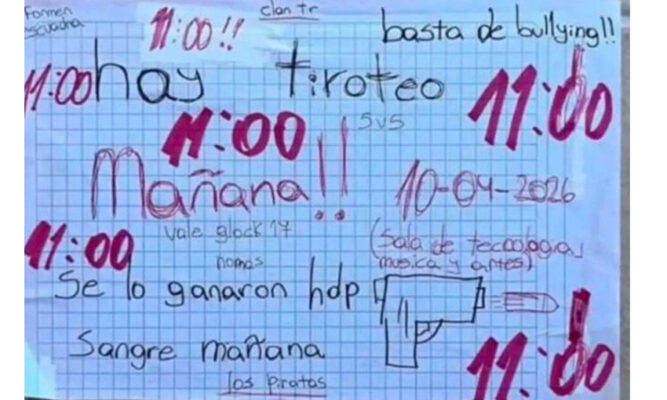 Formen
escuadra
Clan Tr
11:00!!
basta de bullying!!
11:00
hay tiroteo
11:00
11:00
5v5
Mañana!!
10-04-2026
vale glock 17
nomas
(Sala de tecnologias
musica y artes)
11:00
Se lo ganaron hdp
Sangre mañana
los piratas
11:00